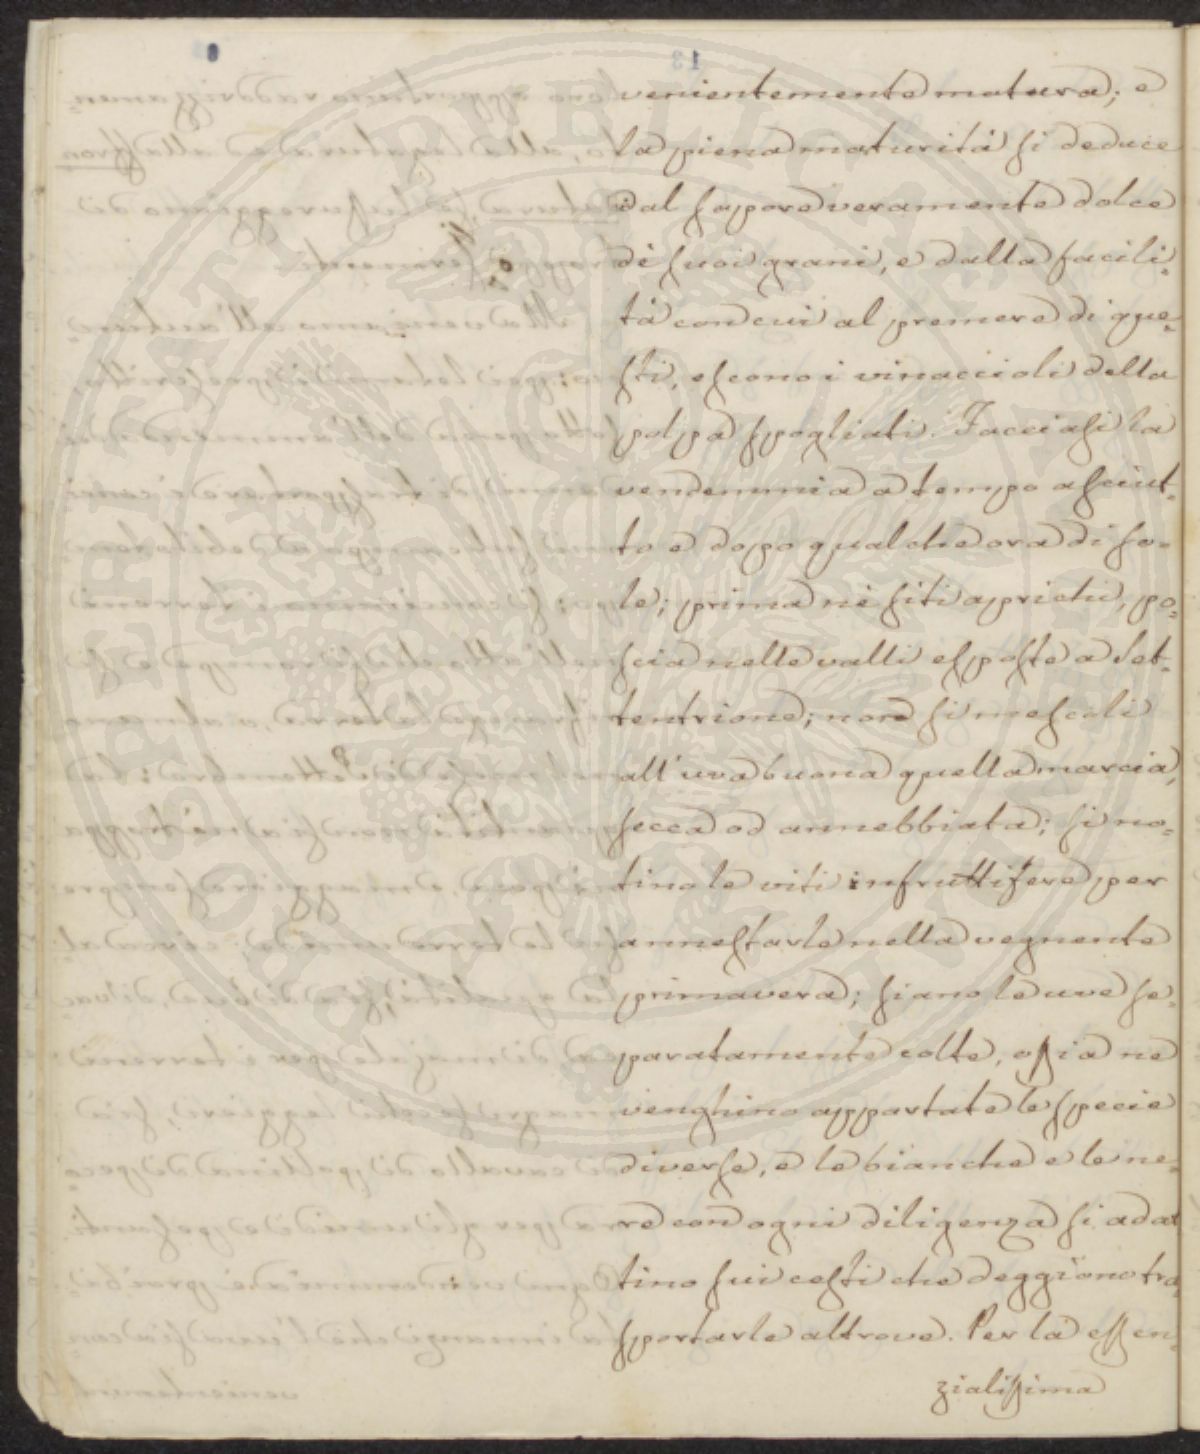 venientemente matura; e
la piena maturità si deduce
dal sapore veramente dolce
di suoi grani, e dalla facili=
tà con cui al premere di que=
sti, escono i vinaccioli della
polpa spogliati. Facciasi la
vendemmia a tempo asciut=
to e dopo qualche ora di so=
le; prima ne siti aprichi, po=
scia nelle valli esposte a Set=
tentrione; non si mescoli
all'uva buona quella marcia,
secca od annebbiata; si no=
tino le viti infruttifere per
annestarle nella vegnente
primavera; siano le uve se=
paratamente colte, ossia ne
venghino appartate le specie
diverse, e le bianche e le ne=
re con ogni diligenza si adat
tino sui cesti che deggiono tra=
sportarle altrove. Per la essen=
zialissima